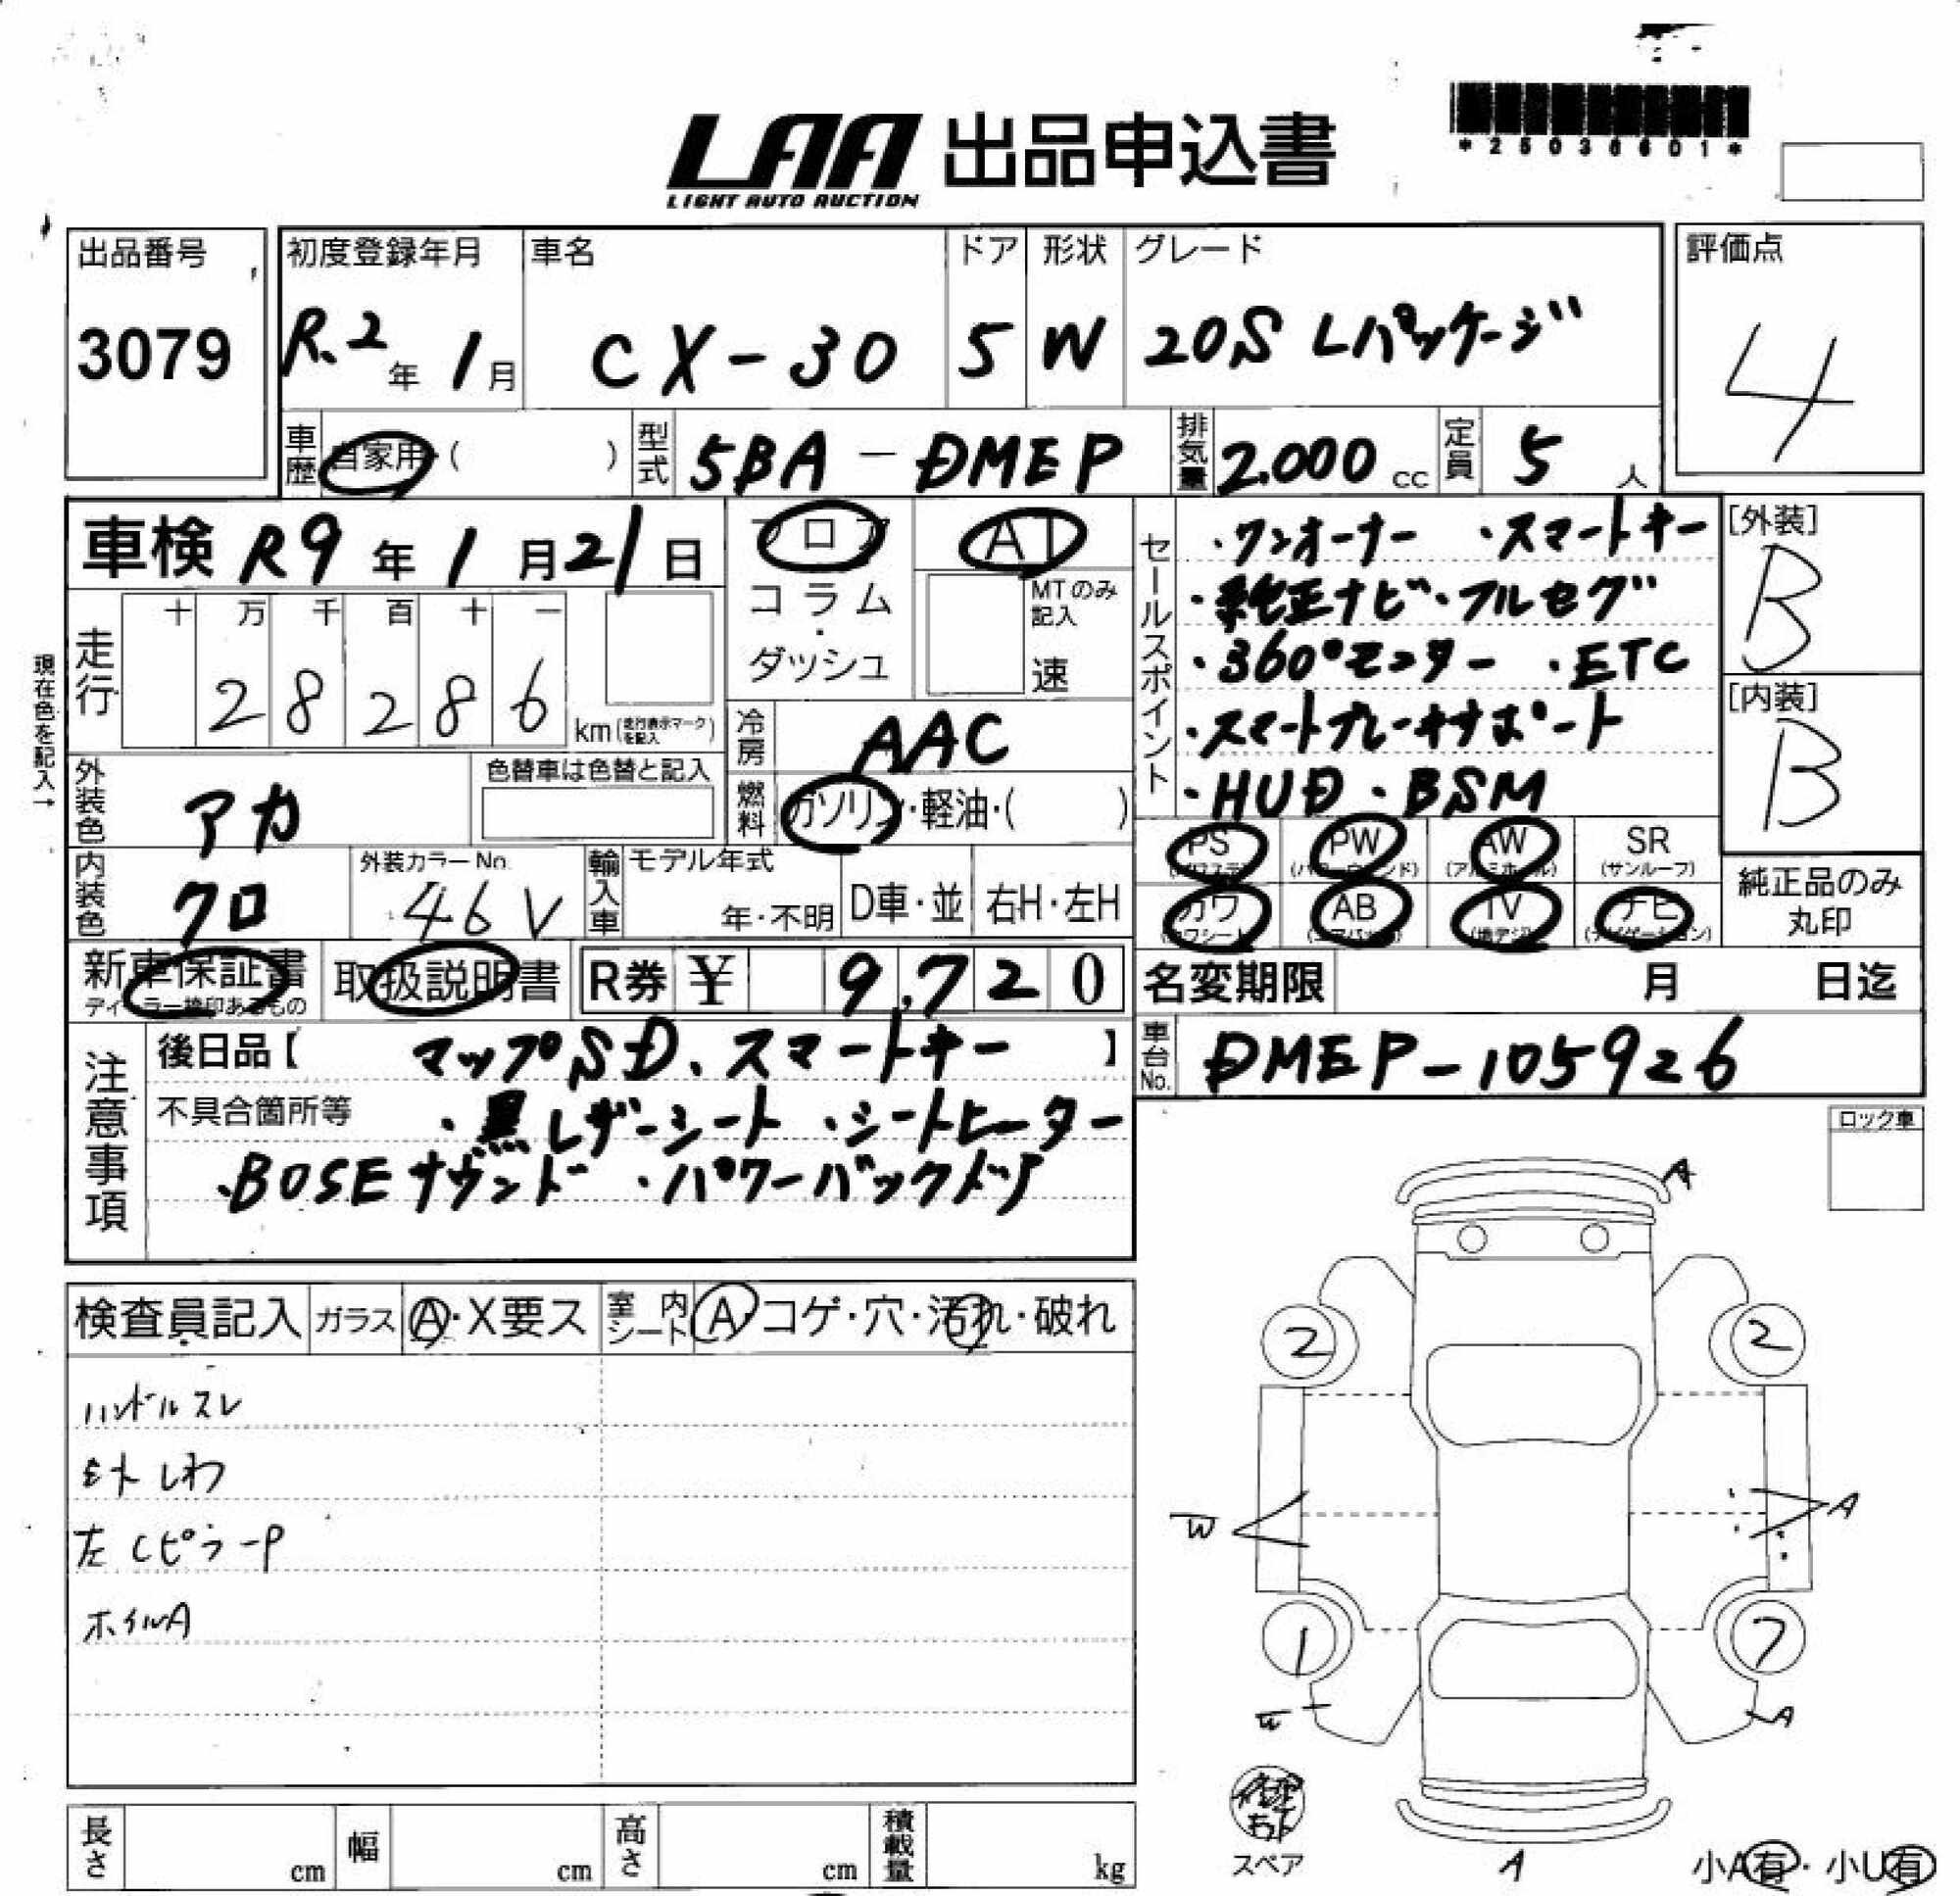 LAA 出品申込書
LIGHT AUTO AUCTION
*25036601*
出品番号 初度登録年月 車名 ドア 形状 グレード 評価点
3079 R.2年 1月 CX-30 5 W 20S Lパッケージ 4
車歴 自家用・( ) 型式 5BA-DMEP 排気量 2.000 cc 定員 5 人
車検 R9年 1月21日 フロア AT
コラム・ダッシュ MTのみ記入 速
セールスポイント
・ワンオーナー ・スマートキー
・純正ナビ・フルセグ
・360°モニター ・ETC
・スマートブレーキサポート
・HUD ・BSM
[外装] B
[内装] B
現在色を記入→
走行 十 万 千 百 十 一
2 8 2 8 6 km(走行表示マークを記入)
冷房 AAC
外装色 アカ 色替車は色替と記入
燃料 ガソリン・軽油・( )
PS (パワステ) PW (パワーウィンド) AW (アルミホイール) SR (サンルーフ)
カワ (カワシート) AB (エアバッグ) TV (地デジ) ナビ (ナビゲーション)
純正品のみ丸印
内装色 クロ 外装カラーNo. 46V 輸入車 モデル年式 年・不明 D車・並 右H・左H
新車保証書 ディーラー捺印あるもの 取扱説明書 R券 ¥ 9,720
名変期限 月 日迄
注意事項
後日品【 マップSD、スマートキー 】
車台No. DMEP-105926
不具合箇所等 ・黒レザーシート ・シートヒーター
・BOSEサウンド ・パワーバックドア
ロック車
A
検査員記入 ガラス A・X要ス 室内シート A・コゲ・穴・汚れ・破れ
2 2
ハンドルスレ
シートしわ
W A
左CピラーP
ホイルA
1 7
A
スペア
A
小A有・小U有
長さ cm 幅 cm 高さ cm 積載量 kg